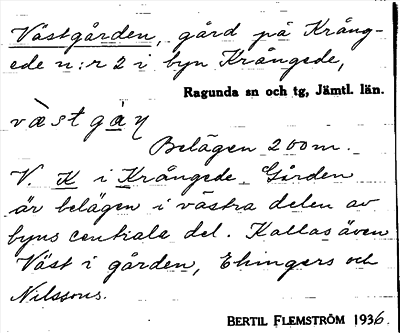 Västgården, gård på Krång-
ede n:r 2 i byn Krångede,
Ragunda sn och tg, Jämtl. län.
Belägen 200 m.
V. K i Krångede. Gården
är belägen i västra delen av
byns centrala del. Kallas även
Väst i gården, Ehingers och
Nilssons.
BERTIL FLEMSTRÖM 1936.